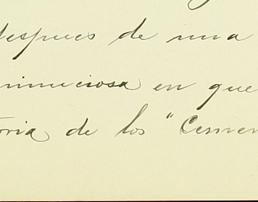 despues de una
minuciosa en que
oria de los "Cemen